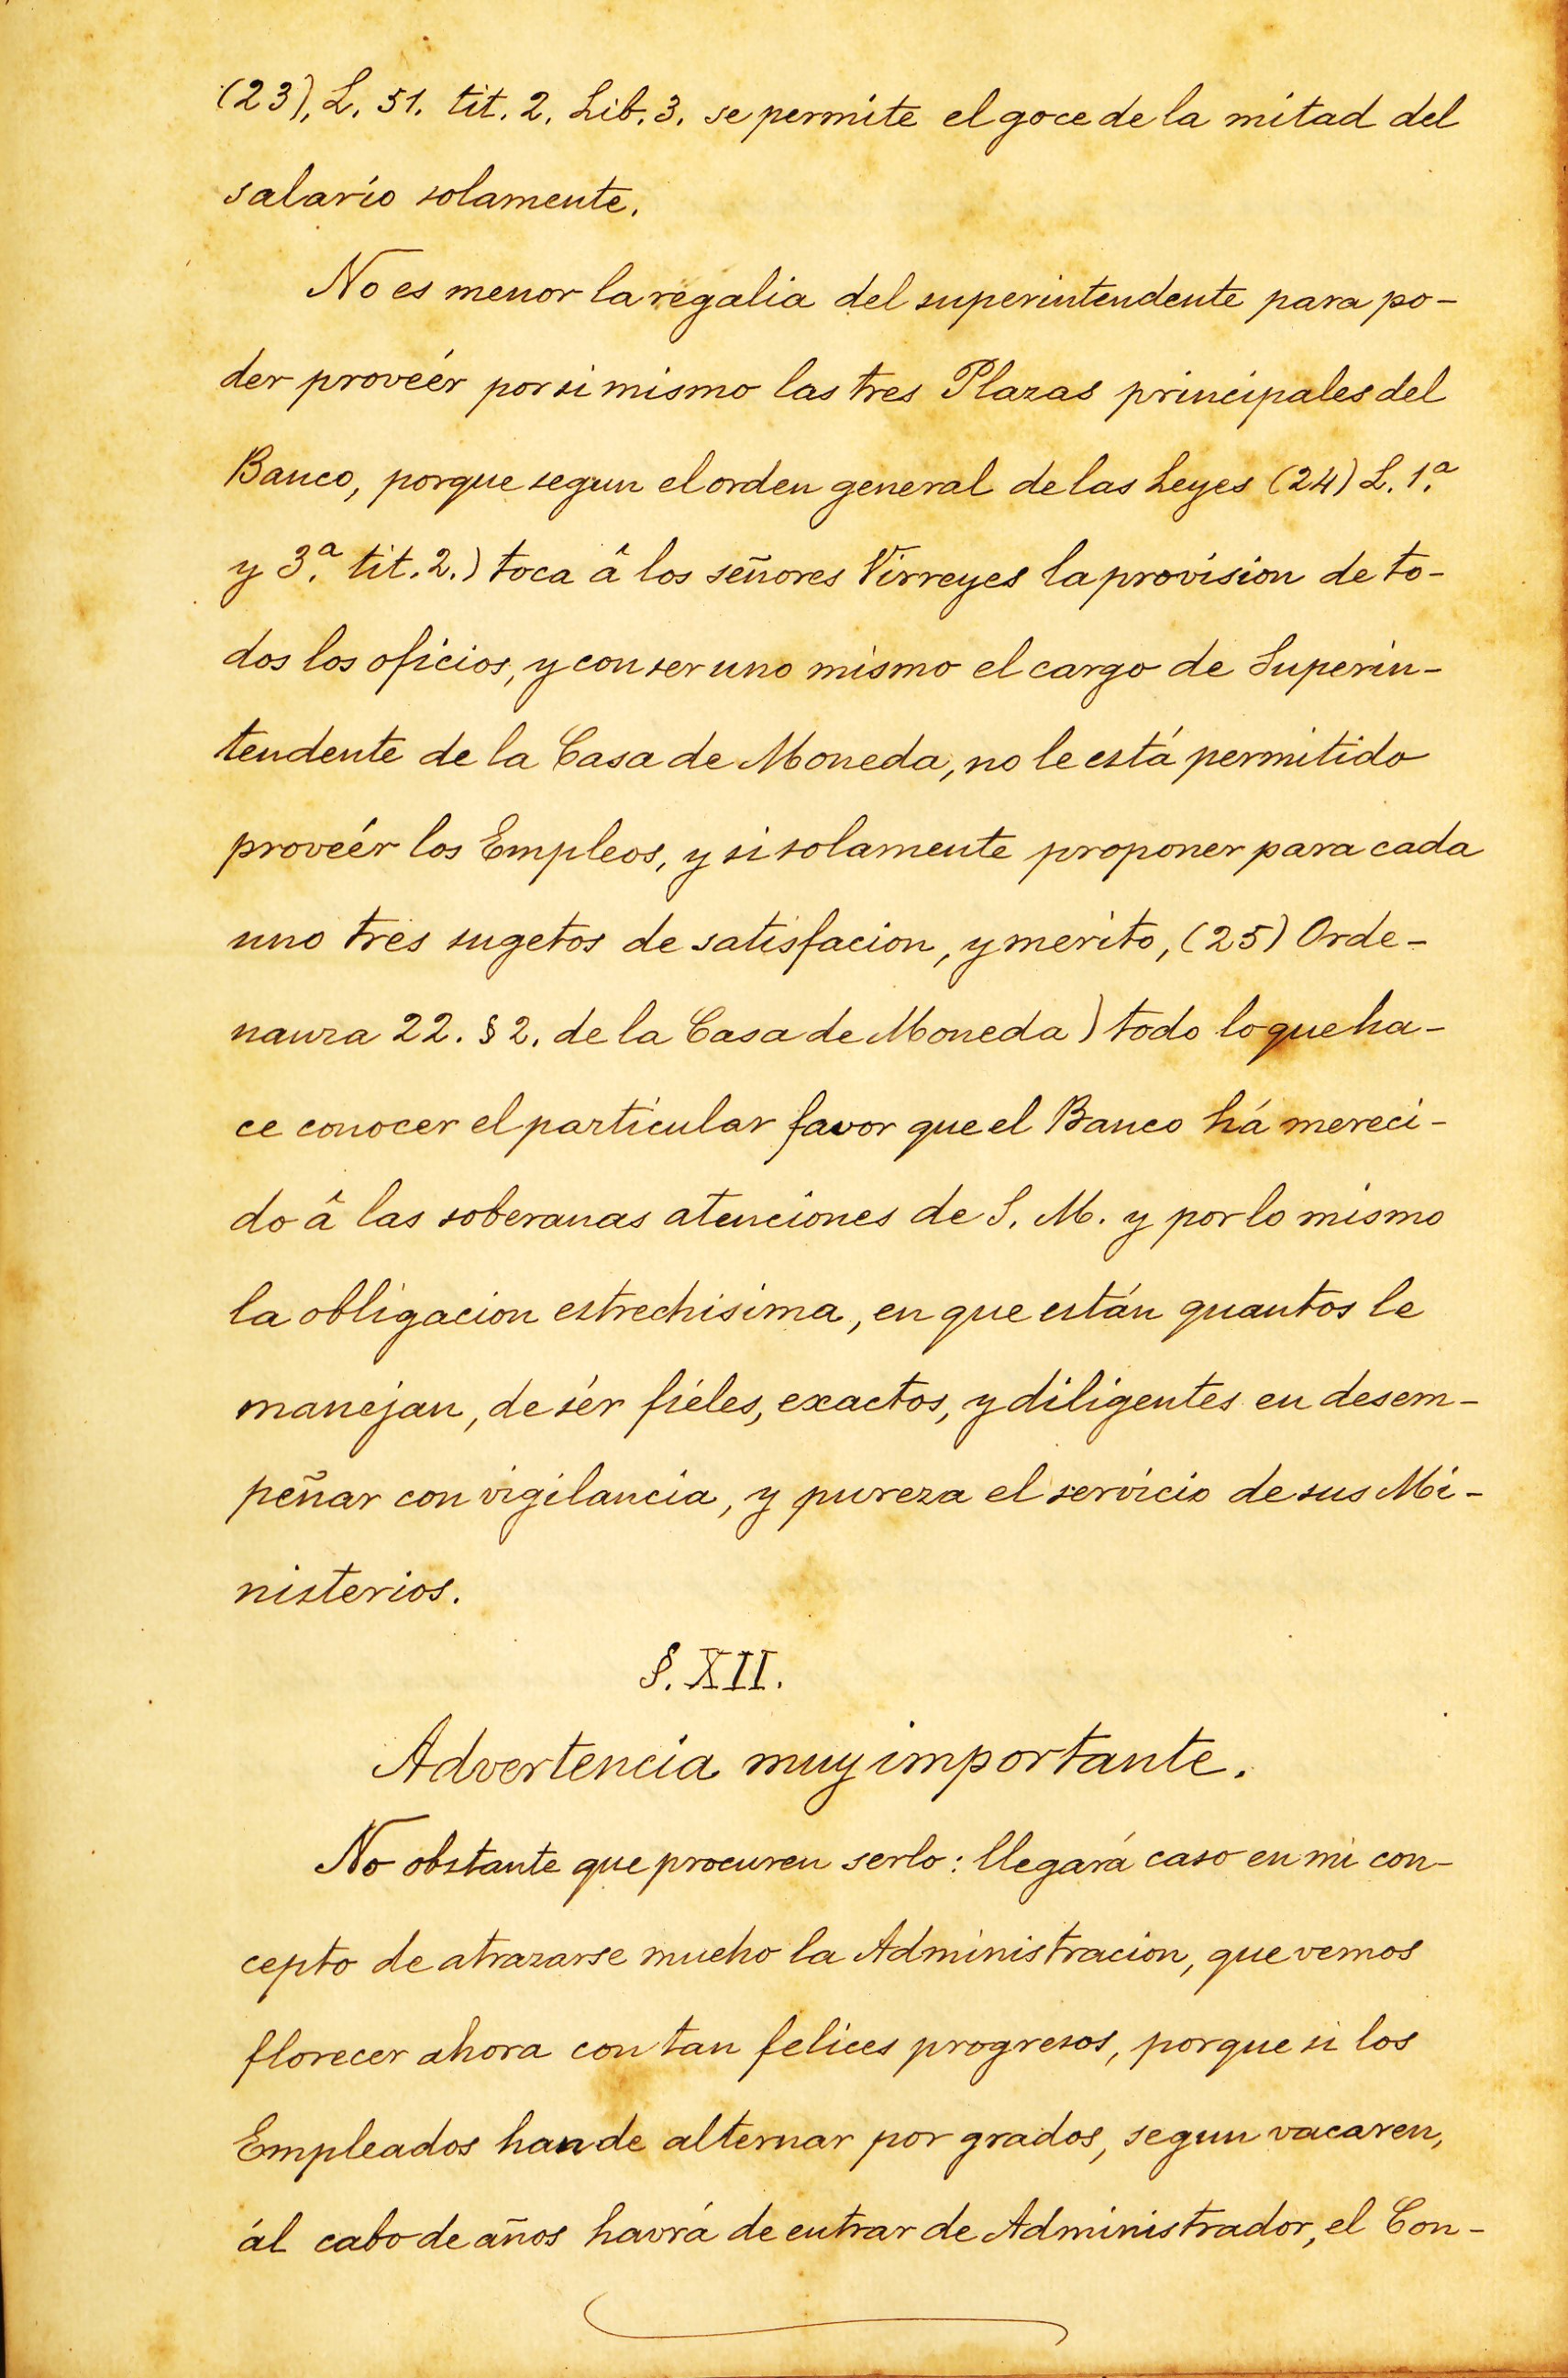 (23), L. 51. tit. 2. Lib. 3. se permite el goce de la mitad del
salario solamente.
No es menor la regalia del superintendente para po-
der proveér por si mismo las tres Plazas principales del
Banco, porque segun el orden general de las Leyes (24) L. 1.ª
y 3.ª tit. 2.) toca â los señores Virreyes la provision de to-
dos los oficios, y con ser uno mismo el cargo de Superin-
tendente de la Casa de Moneda, no le está permitido
proveér los Empleos, y si solamente proponer para cada
uno tres sugetos de satisfacion, y merito, (25) Orde-
nanza 22. § 2. de la Casa de Moneda) todo lo que ha-
ce conocer el particular favor que el Banco há mereci-
do â las soberanas atenciones de S. M. y por lo mismo
la obligacion estrechisima, en que están quantos le
manejan, de sér fieles, exactos, y diligentes en desem-
peñar con vigilancia, y pureza el servicio de sus Mi-
nisterios.
§. XII.
Advertencia muy importante.
No obstante que procuren serlo: llegará caso en mi con-
cepto de atrazarse mucho la Administracion, que vemos
florecer ahora con tan felices progresos, porque si los
Empleados han de alternar por grados, segun vacaren,
ál cabo de años havrá de entrar de Administrador, el Con-